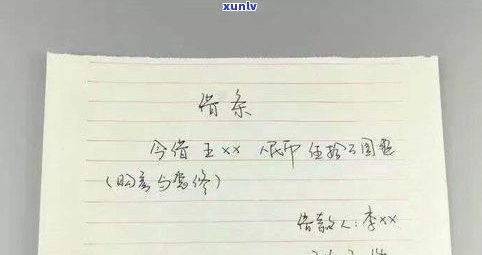 xunlv
借条
今借王xx 人民币伍拾万圆整
(购房与装修)
借款人:李xx